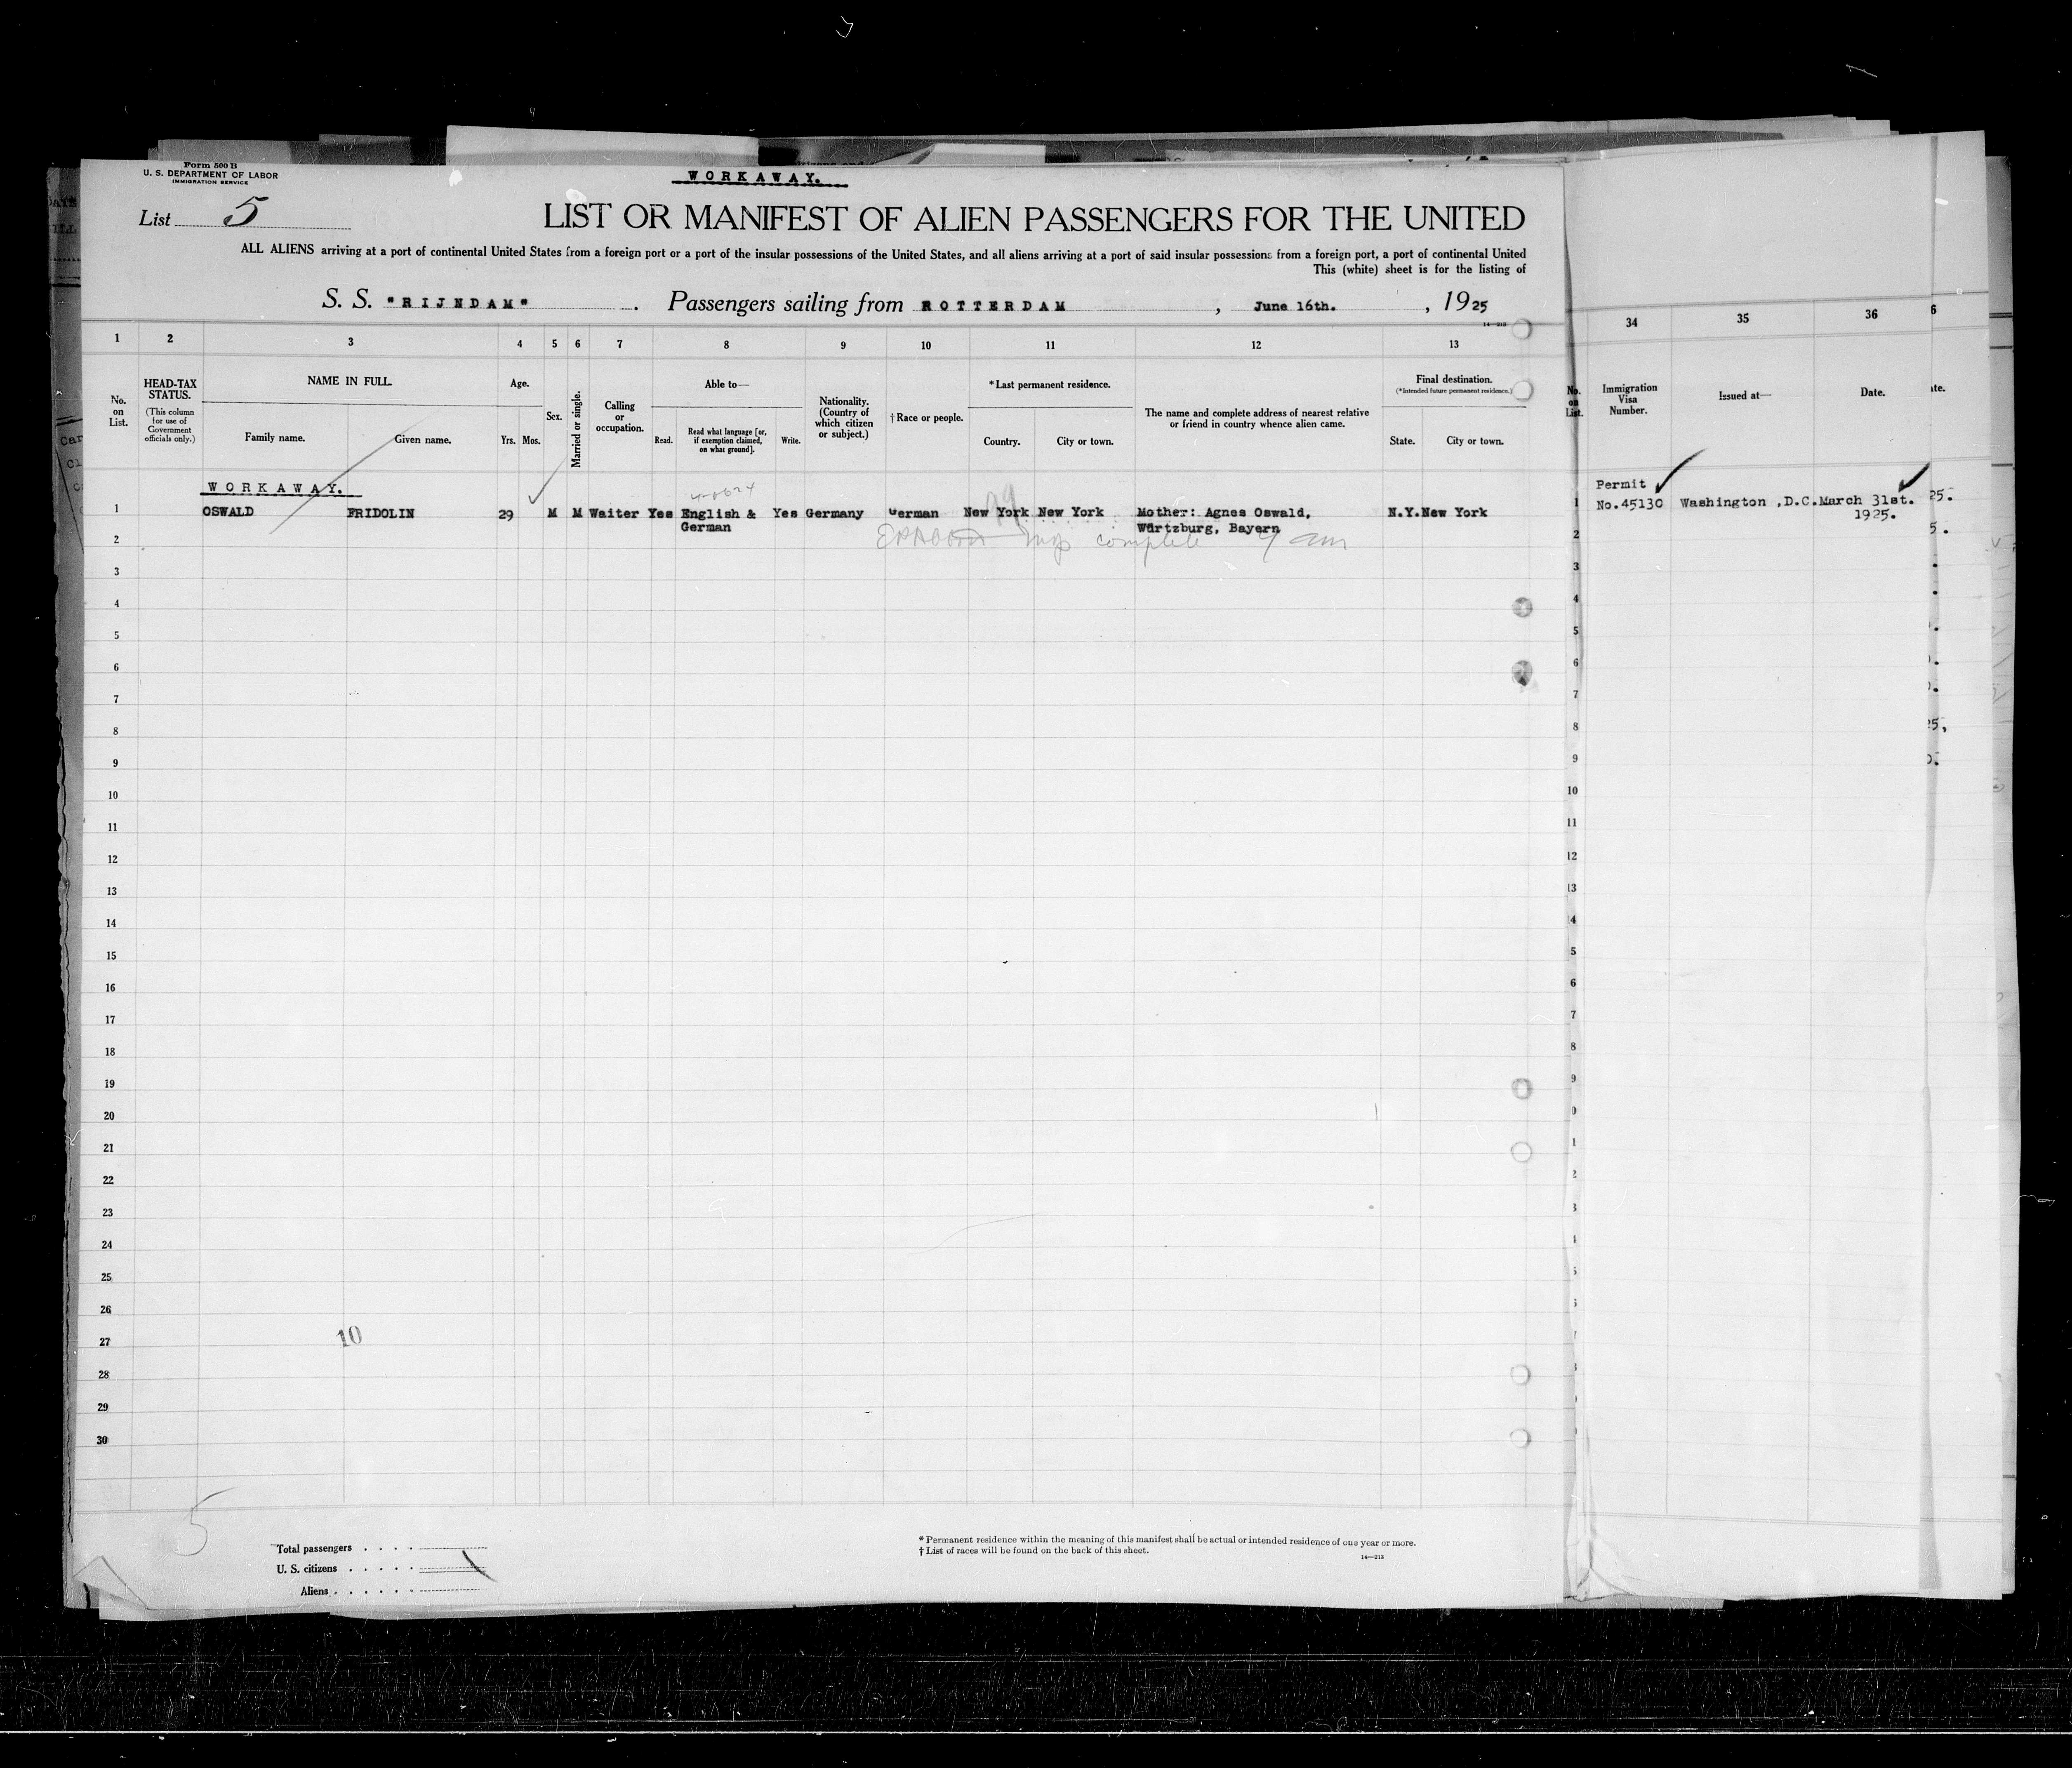 Form 500 B
U. S. DEPARTMENT OF LABOR
IMMIGRATION SERVICE
WORKAWAY.
List 5
LIST OR MANIFEST OF ALIEN PASSENGERS FOR THE UNITED
ALL ALIENS arriving at a port of continental United States from a foreign port or a port of the insular possessions of the United States, and all aliens arriving at a port of said insular possessions from a foreign port, a port of continental United
This (white) sheet is for the listing of
S. S. "RIJNDAM". Passengers sailing from ROTTERDAM, June 16th., 1925
14—213
1 2 3 4 5 6 7 8 9 10 11 12 13 34 35 36 6
No. on List.
HEAD-TAX STATUS.
(This column for use of Government officials only.)
NAME IN FULL.
Family name. Given name.
Age.
Yrs. Mos.
Sex.
Married or single.
Calling or occupation.
Able to—
Read. Read what language [or, if exemption claimed, on what ground]. Write.
Nationality. (Country of which citizen or subject.)
†Race or people.
*Last permanent residence.
Country. City or town.
The name and complete address of nearest relative or friend in country whence alien came.
Final destination.
(*Intended future permanent residence.)
State. City or town.
No. on List.
Immigration Visa Number.
Issued at—
Date.
ate.
WORKAWAY.
Permit
1 OSWALD FRIDOLIN 29 M M Waiter Yes English & Yes Germany German New York New York Mother: Agnes Oswald, N.Y. New York 1 No.45130 Washington ,D.C. March 31st. 25.
German Würtzburg, Bayern 1925.
complete
2 2 5.
3 3
4 4
5 5
6 6
7 7
8 8 25,
9 9
10 10
11 11
12 12
13 13
14 4
15 5
16 6
17 7
18 8
19 9
20 0
21 1
22 2
23 3
24
25
26
27 10
28
29
30
5
Total passengers
U. S. citizens
Aliens
* Permanent residence within the meaning of this manifest shall be actual or intended residence of one year or more.
† List of races will be found on the back of this sheet.
14—213